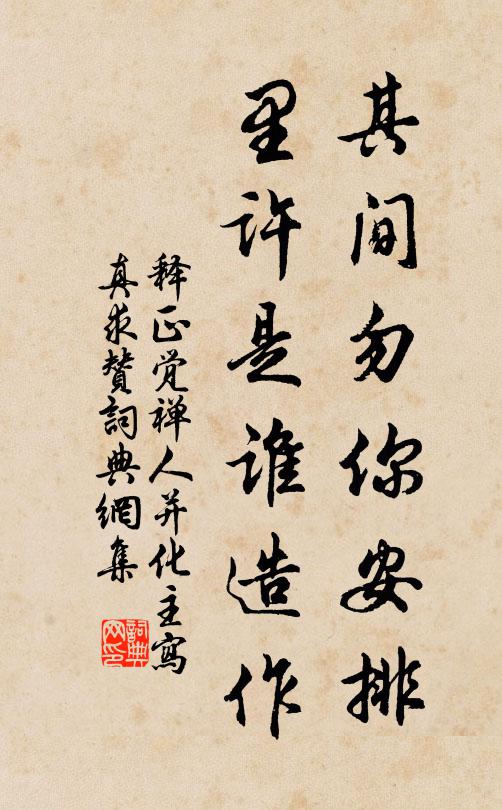 其间勿你安排
里许是谁造作
释正觉禅人并化主寫
真求赞詞典網集
詞典网印